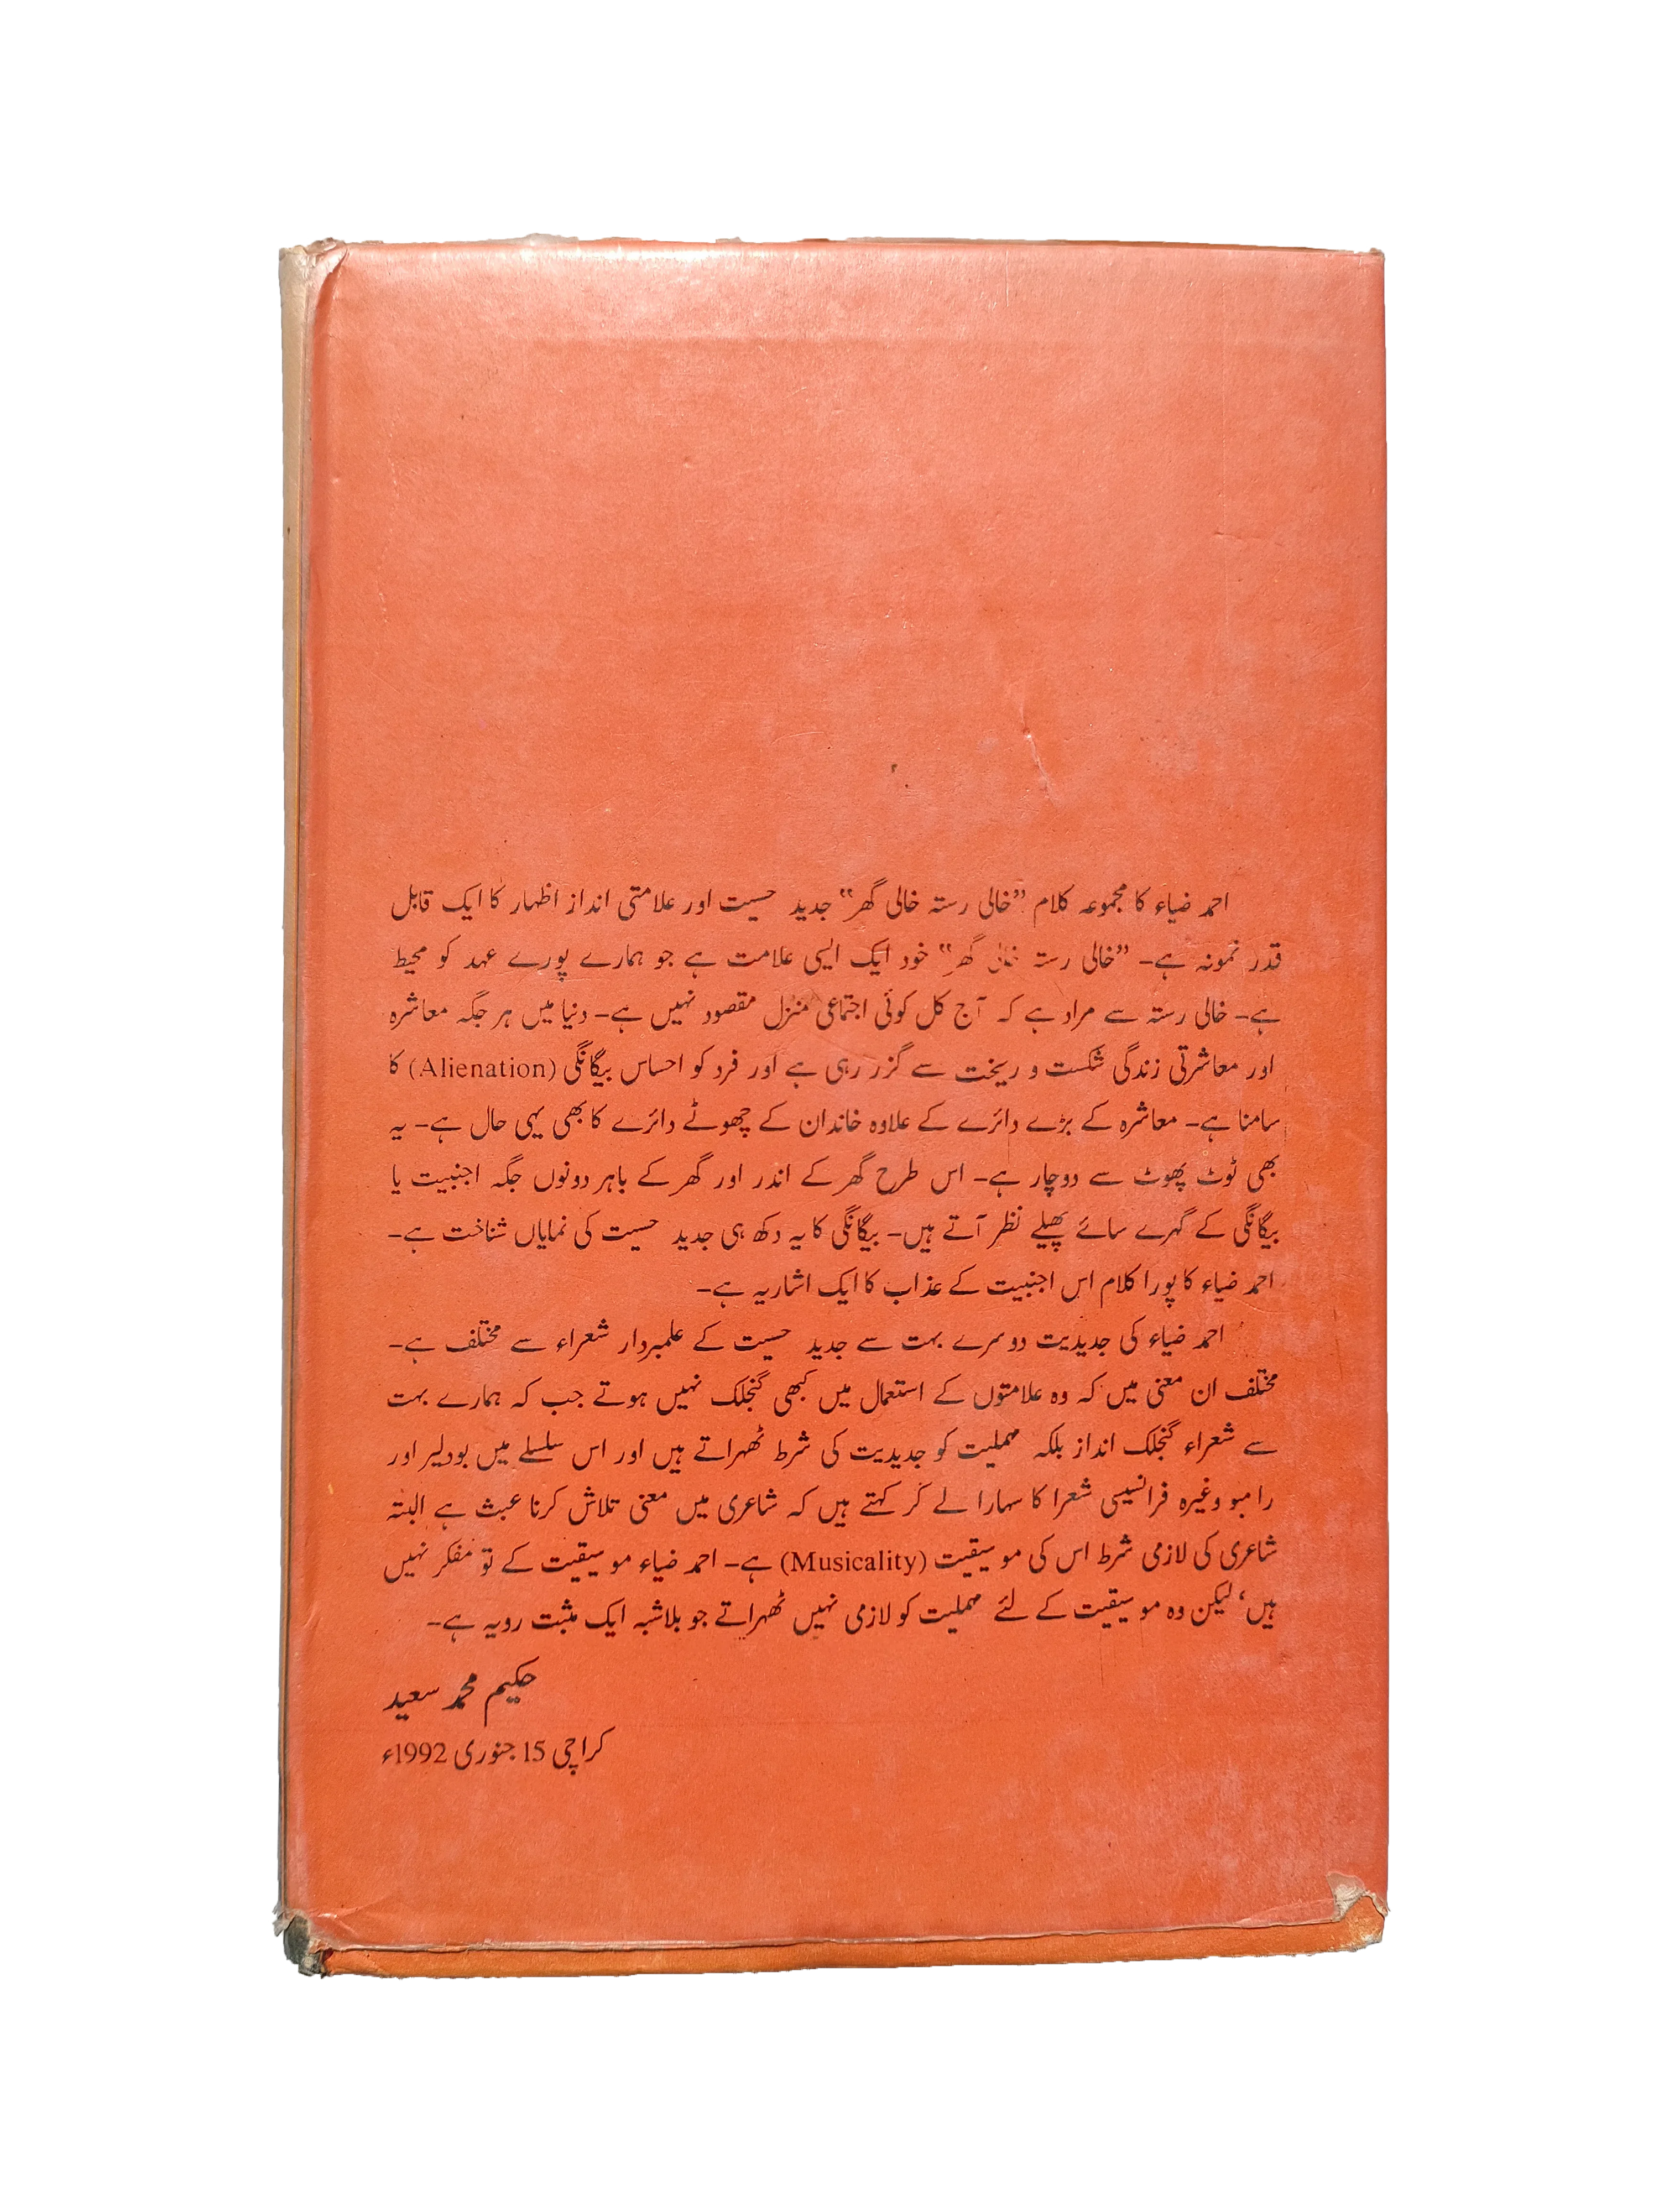 احمد ضیاء کا مجموعہ کلام ”خالی رستہ خالی گھر“ جدید حسیت اور علامتی انداز اظہار کا ایک قابل
قدر نمونہ ہے۔ ”خالی رستہ خالی گھر“ خود ایک ایسی علامت ہے جو ہمارے پورے عہد کو محیط
ہے۔ خالی رستہ سے مراد ہے کہ آج کل کوئی اجتماعی منزل مقصود نہیں ہے۔ دنیا میں ہر جگہ معاشرہ
اور معاشرتی زندگی شکست و ریخت سے گزر رہی ہے اور فرد کو احساس بیگانگی (Alienation) کا
سامنا ہے۔ معاشرہ کے بڑے دائرے کے علاوہ خاندان کے چھوٹے دائرے کا بھی یہی حال ہے۔ یہ
بھی ٹوٹ پھوٹ سے دوچار ہے۔ اس طرح گھر کے اندر اور گھر کے باہر دونوں جگہ اجنبیت یا
بیگانگی کے گہرے سائے پھیلے نظر آتے ہیں۔ بیگانگی کا یہ دکھ ہی جدید حسیت کی نمایاں شناخت ہے۔
احمد ضیاء کا پورا کلام اس اجنبیت کے عذاب کا ایک اشاریہ ہے۔
احمد ضیاء کی جدیدیت دوسرے بہت سے جدید حسیت کے علمبردار شعراء سے مختلف ہے۔
مختلف ان معنی میں کہ وہ علامتوں کے استعمال میں کبھی گنجلک نہیں ہوتے جب کہ ہمارے بہت
سے شعراء گنجلک انداز بلکہ مہملیت کو جدیدیت کی شرط ٹھہراتے ہیں اور اس سلسلے میں بودلیر اور
رامبو وغیرہ فرانسیسی شعرا کا سہارا لے کر کہتے ہیں کہ شاعری میں معنی تلاش کرنا عبث ہے البتہ
شاعری کی لازمی شرط اس کی موسیقیت (Musicality) ہے۔ احمد ضیاء موسیقیت کے تو مفکر نہیں
ہیں، لیکن وہ موسیقیت کے لئے مہملیت کو لازمی نہیں ٹھہراتے جو بلاشبہ ایک مثبت رویہ ہے۔
حکیم محمد سعید
کراچی 15 جنوری 1992ء